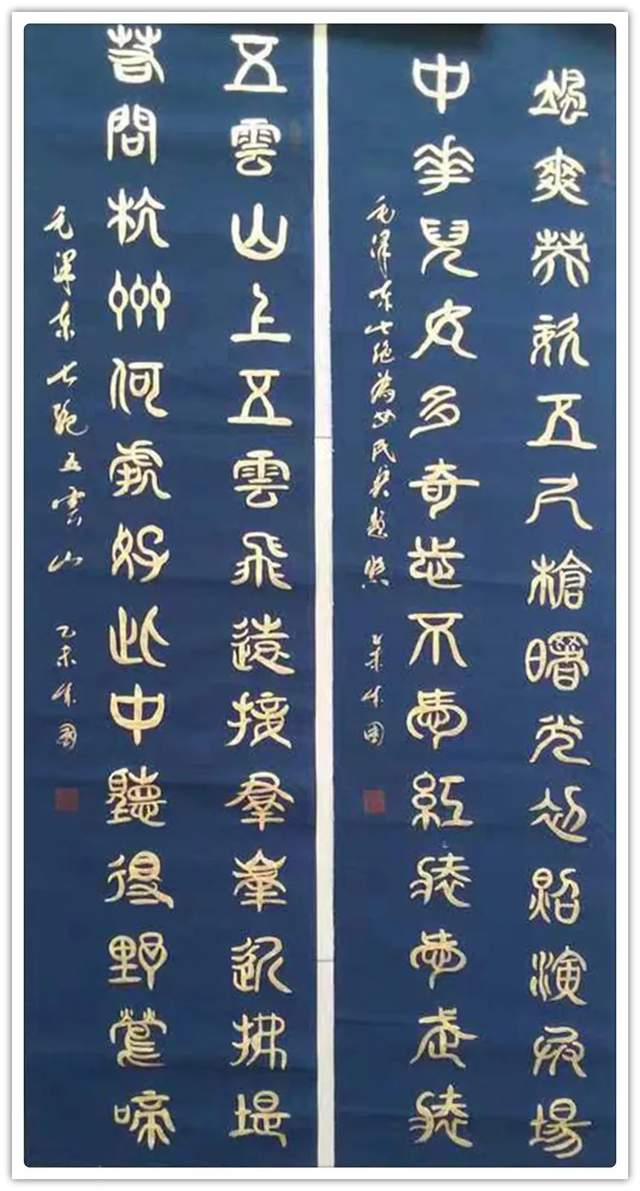 颯爽英姿五尺槍曙光初照演兵場
中華兒女多奇志不愛紅裝愛武裝
毛澤東七絕為女民兵題照 乙未
五雲山上五雲飛遠接羣峯近拂堤
若問杭州何處好此中聽得野鶯啼
毛澤東七絕五雲山 乙未